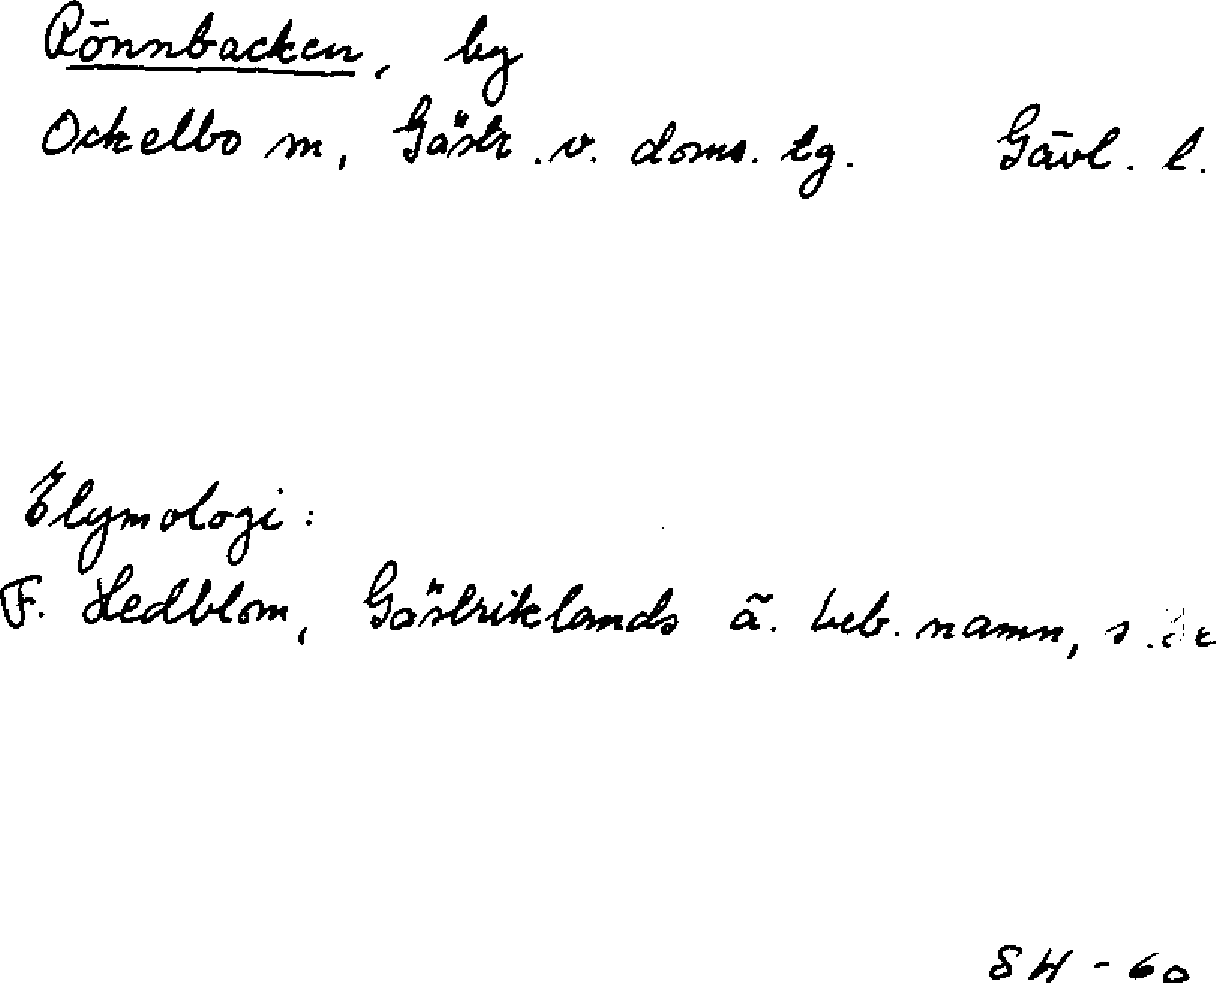 Rönnbacken, by
Ockelbo sn, Gästr. v. doms. tg. Gävl. l.
Etymologi:
F. Hedblom, Gästriklands ä. beb. namn, s.
SH - 60